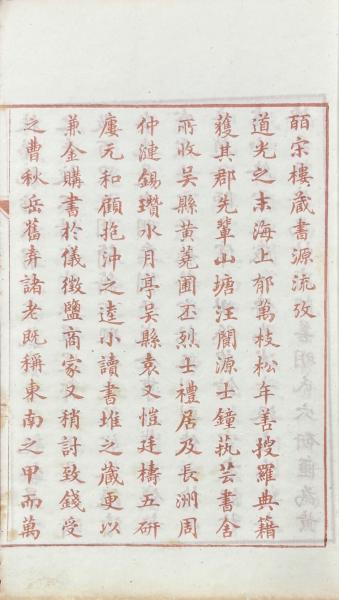 皕宋樓藏書源流攷
道光之末海上郁萬枝松年善搜羅典籍
獲其郡先輩山塘汪閬源士鐘執芸書舍
所收吳縣黃蕘圃丕烈士禮居及長洲周
仲漣錫瓚水月亭吳縣袁又愷廷檮五研
廔元和顧抱沖之逵小讀書堆之藏更以
兼金購書於儀徵鹽商家又稍討致錢受
之曹秋岳舊弆諸老既稱東南之甲而萬